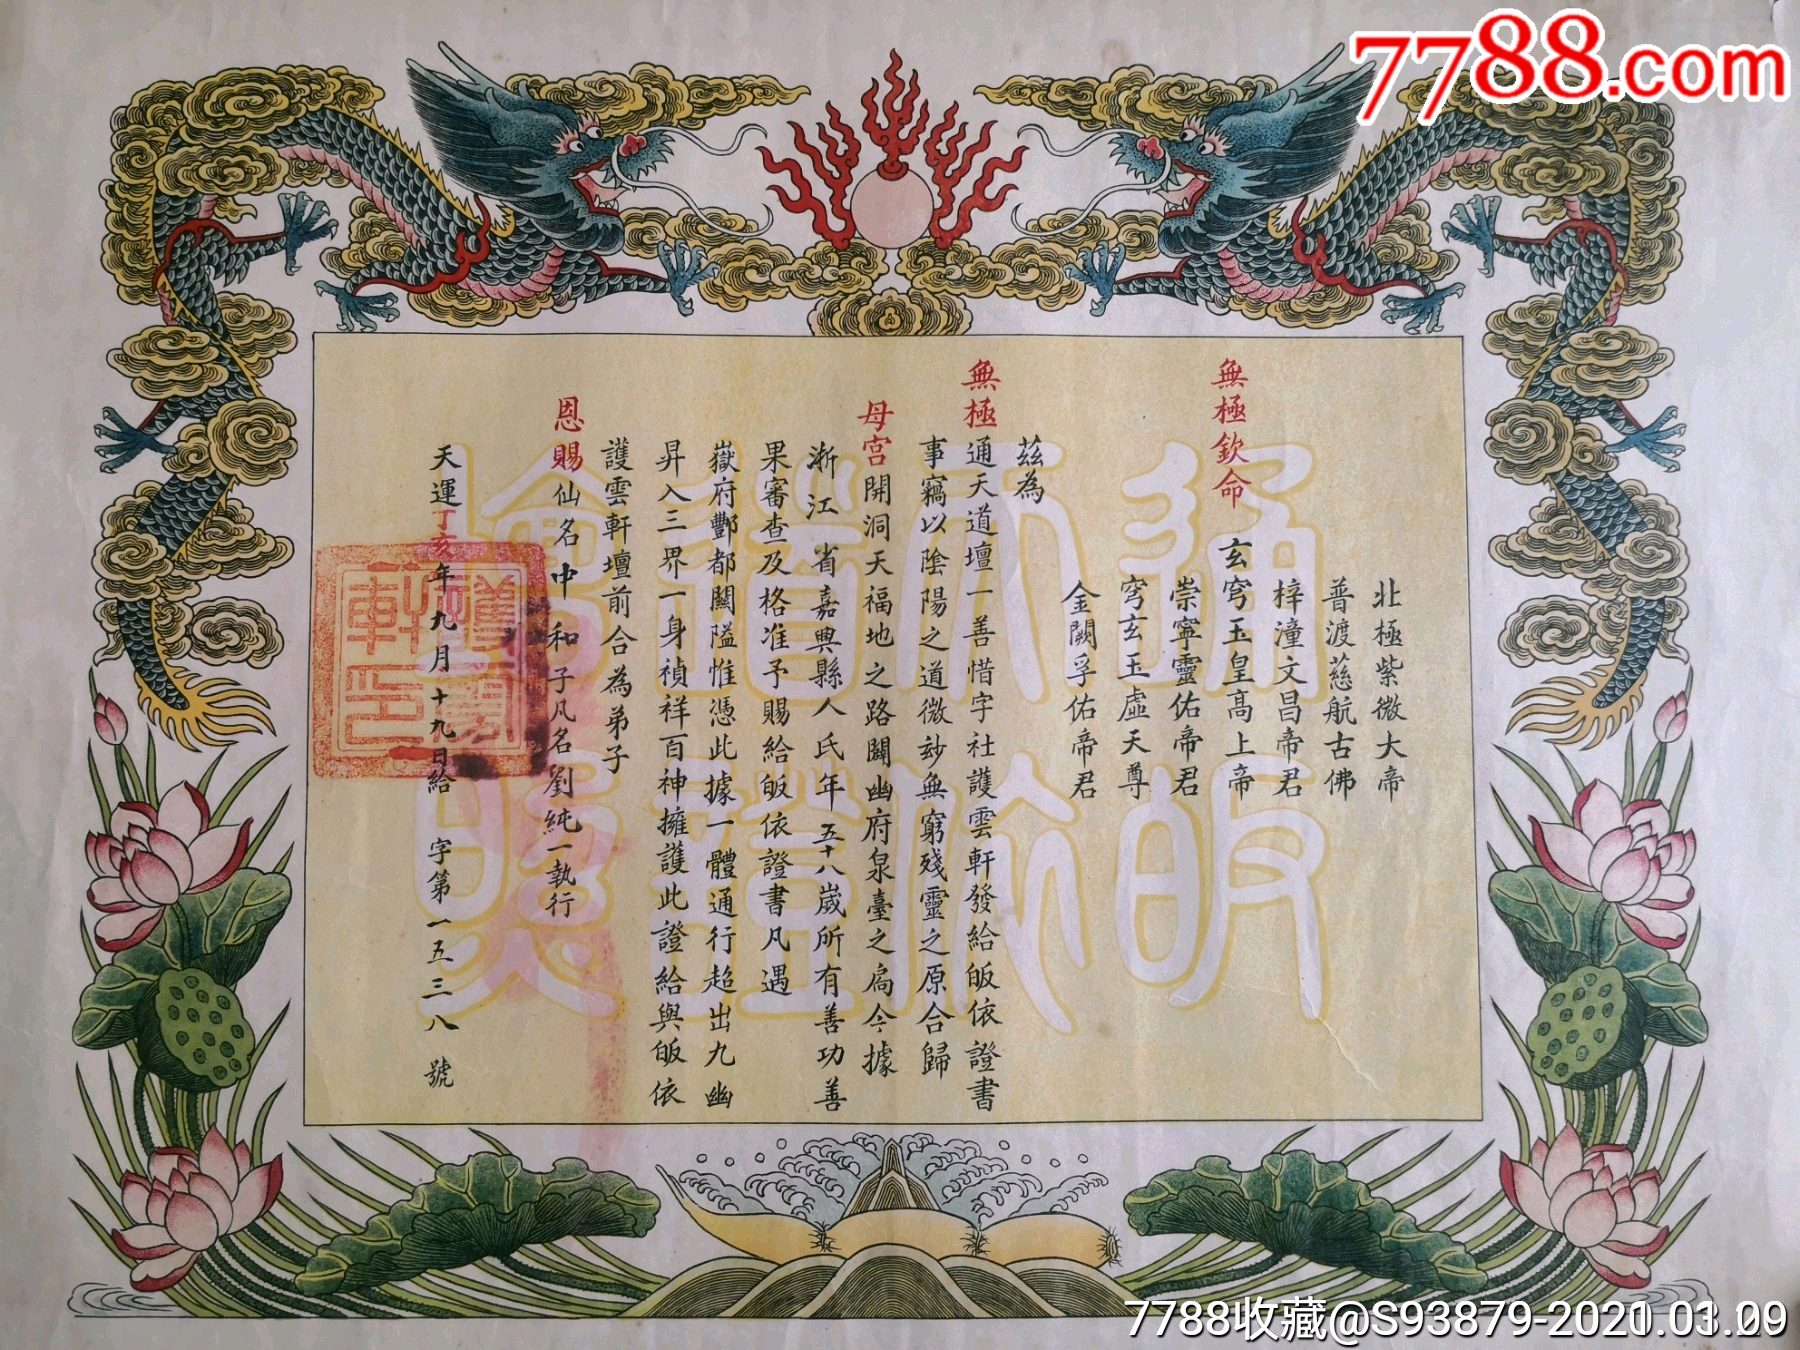 7788.com
北極紫微大帝
普渡慈航古佛
梓潼文昌帝君
無極欽命 玄穹玉皇高上帝
崇寧靈佑帝君
穹玄玉虛天尊
金闕孚佑帝君
茲為
無極通天道壇一善惜字社護雲軒發給皈依證書
事竊以陰陽之道微玅無窮殘靈之原合歸
母宮開洞天福地之路闢幽府泉臺之扃今據
浙江省嘉興縣人氏年五十八歲所有善功善
果審查及格准予賜給皈依證書凡遇
嶽府酆都關隘惟憑此據一體通行超出九幽
昇入三界一身禎祥百神擁護此證給與皈依
護雲軒壇前合為弟子
恩賜仙名中和子凡名劉純一執行
天運丁亥年九月十九日給 字第一五三八號
通天道壇
皈依證
護雲軒印
7788收藏@S93879-2020.03.09